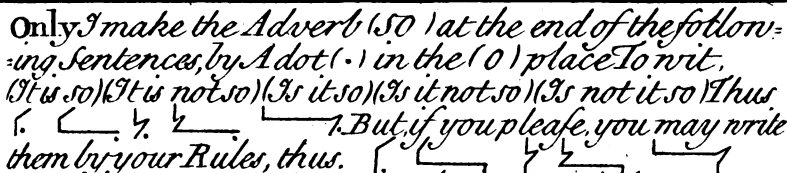 Only I make the Adverb (SO) at the end of the follow=
=ing Sentences, by A dot (·) in the (O) place To wit,
(It is so) (It is not so) (Is it so) (Is it not so) (Is not it so) Thus
But, if you pleaſe, you may write
them by your Rules, thus.